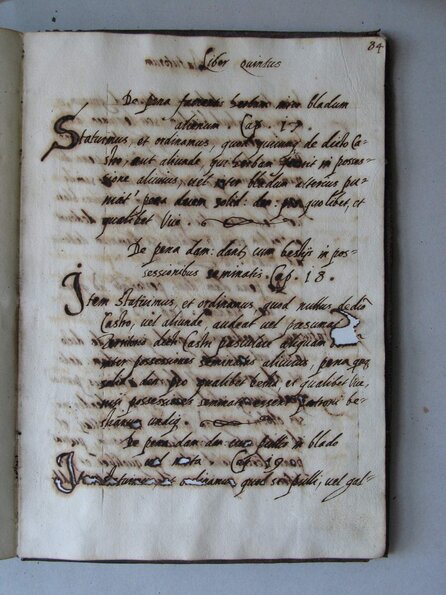 84
Liber quintus
De pena facientis herbam inter bladum
alienum. Cap. 17.
Statuimus, et ordinamus, quod quicunq de dicto Ca=
stro, aut aliunde, herbam in posses=
sione alicuius, vel inter bladum alterius pu=
niat pena decem solid: den: pro quolibet, et
qualibet vice.
De pena dam: dant: cum bestijs in pos=
sessionibus seminatis. Cap. 18.
Item statuimus, et ordinamus, quod nullus de dicto
Castro, vel aliunde, audeat vel presumat
territorio dicti Castri pasculare aliquam
inter possessiones seminatas alicuius, pena
solid: den: pro qualibet bestia, et qualibet vice,
possessiones seminate essent patroni be=
stiarum
De pena dam: dan: cum pullis in blado
vel Cap. 19.
Item statuimus, et ordinamus, quod si pulli, vel gal=